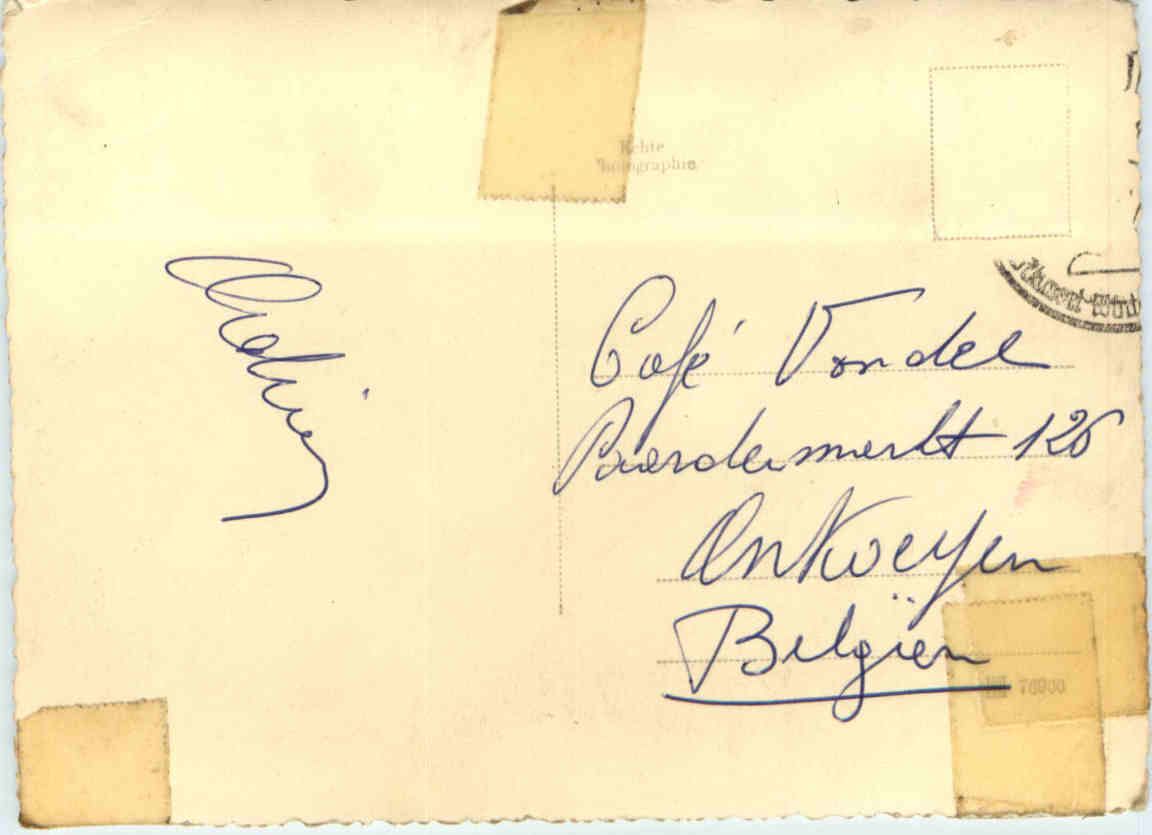 Echte
Photographie
Café Vondel
Paardenmarkt 126
Antwerpen
België
76900